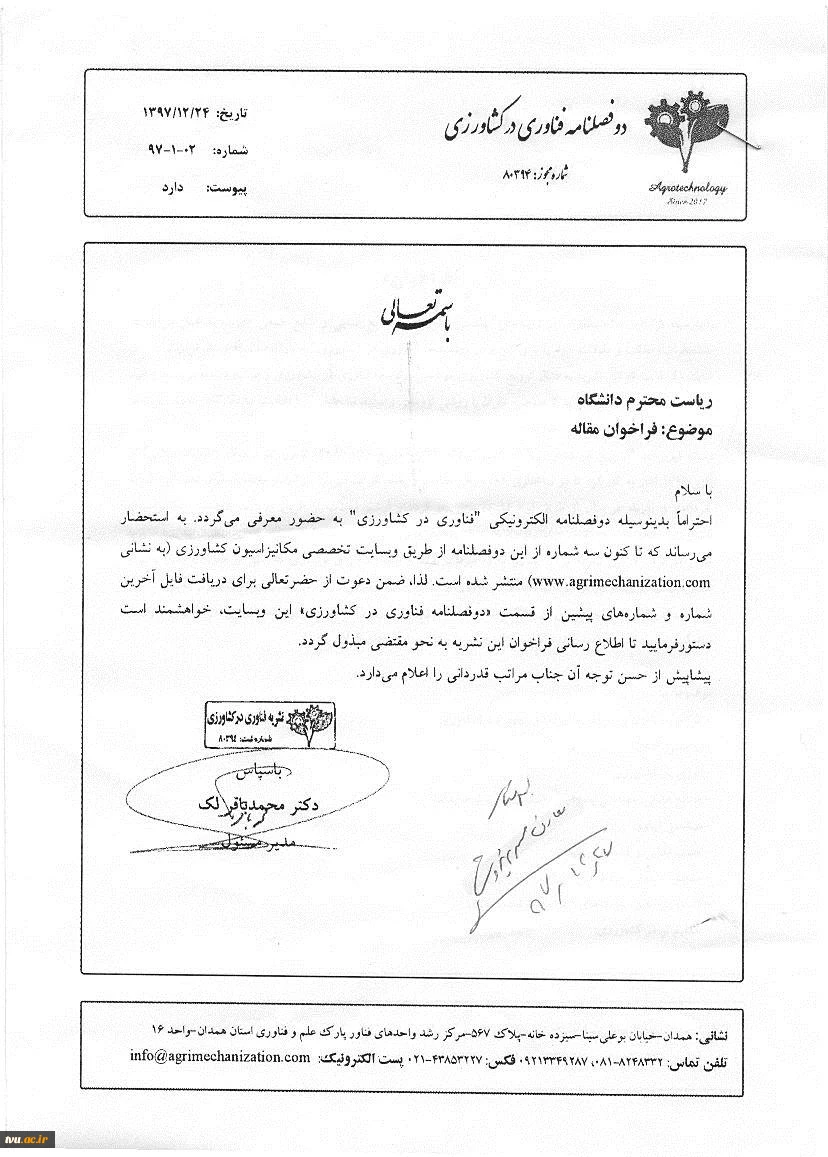 دوفصلنامه فناوری در کشاورزی
شماره مجوز: ۸۰۳۹۴
Agrotechnology
Since 2017
تاریخ: ۱۳۹۷/۱۲/۲۴
شماره: ۹۷-۱-۰۲
پیوست: دارد
باسمه تعالی
ریاست محترم دانشگاه
موضوع: فراخوان مقاله
با سلام
احتراماً بدینوسیله دوفصلنامه الکترونیکی "فناوری در کشاورزی" به حضور معرفی می‌گردد. به استحضار
می‌رساند که تا کنون سه شماره از این دوفصلنامه از طریق وبسایت تخصصی مکانیزاسیون کشاورزی (به نشانی
www.agrimechanization.com) منتشر شده است. لذا، ضمن دعوت از حضرتعالی برای دریافت فایل آخرین
شماره و شماره‌های پیشین از قسمت «دوفصلنامه فناوری در کشاورزی» این وبسایت، خواهشمند است
دستورفرمایید تا اطلاع رسانی فراخوان این نشریه به نحو مقتضی مبذول گردد.
پیشاپیش از حسن توجه آن جناب مراتب قدردانی را اعلام می‌دارد.
نشریه فناوری در کشاورزی
شماره ثبت: ۸۰۳۹۴
باسپاس
دکتر محمدباقر لک
مدیر مسئول
نشانی: همدان-خیابان بوعلی سینا-سیزده خانه-پلاک ۵۶۷-مرکز رشد واحدهای فناور پارک علم و فناوری استان همدان-واحد ۱۶
تلفن تماس: ۸۲۴۸۳۳۲-۰۸۱، ۰۹۲۱۳۳۴۹۲۸۷ فکس: ۴۳۸۵۳۲۲۷-۰۲۱ پست الکترونیک: info@agrimechanization.com
tvu.ac.ir